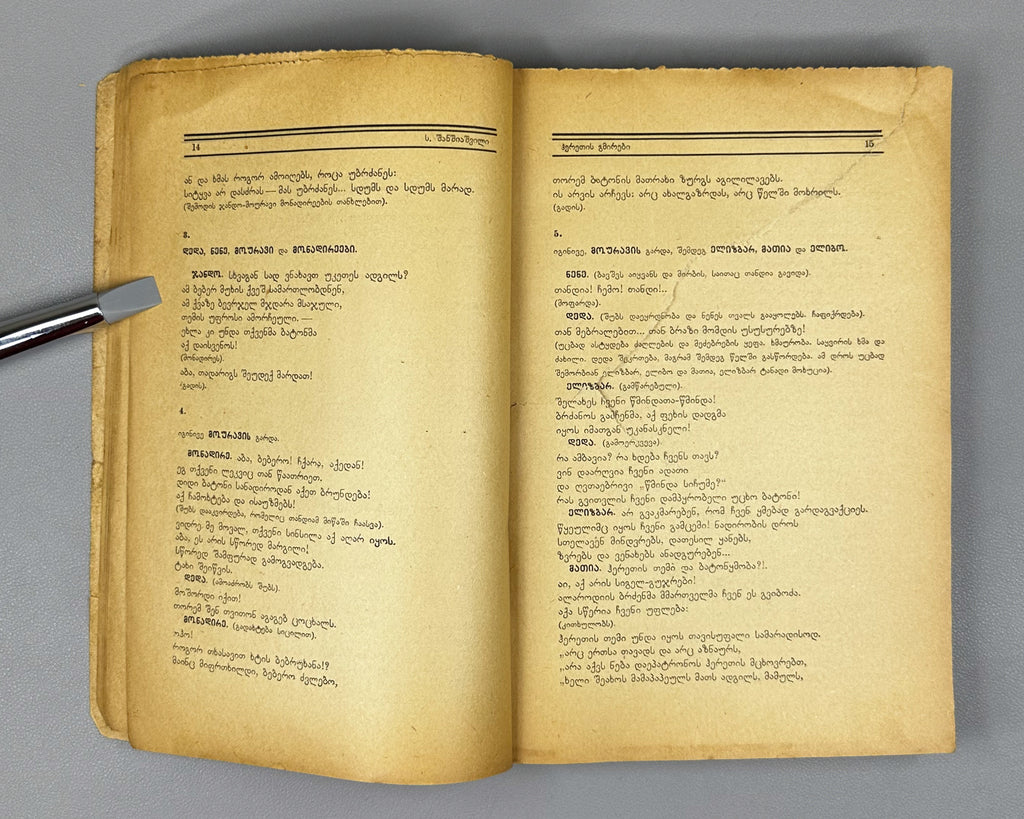 14
ს. შანშიაშვილი
ან და ხმას როგორ ამოიღებს, როცა უბრძანეს:
სიტყვა არ დასძრას — მას უბრძანეს... სდუმს და სდუმს მარად.
(შემოდის ჯანდო-მოურავი მონადირეების თანხლებით).
3.
დედა, ნენე, მოურავი და მონადირეები.
ჯანდო. სხვაგან სად ვნახავთ უკეთეს ადგილს?
ამ ბებერ მუხის ქვეშ სამართლობდნენ,
ამ ქვაზე ბევრჯელ მჯდარა მსაჯული,
თემის უფროსი ამორჩეული, —
ეხლა კი უნდა თქვენმა ბატონმა
აქ დაისვენოს!
(მონადირეს).
აბა, თადარიგს შეუდექ მარდათ!
(გადის).
4.
იგინივე მოურავის გარდა.
მონადირე. აბა, ბებერო! ჩქარა, აქედან!
ეგ თქვენი ლეკვიც თან წაათრიეთ.
დიდი ბატონი სანადიროდან აქეთ ბრუნდება!
აქ ჩამოხტება და ისაუზმებს!
(შუბს დააკვირდება, რომელიც თანდიამ მიწაში ჩაასვა).
ვიდრე მე მოვალ, თქვენი სინსილა აქ აღარ იყოს.
აბა, ეს არის სწორედ მარგილი!
სწორედ შამფურად გამოგვადგება.
ტახი შეიწვის.
დედა. (ამოაძრობს შუბს).
მოშორდი იქით!
თორემ შენ თვითონ აგაგებ ცოცხალს.
მონადირე. (გადახტება სიცილით).
ოჰო!
როგორ თხასავით ხტის ბებრუხანა!?
მაინც მიფრთხილდი, ბებერო ძვლებო,
ჰერეთის გმირები
15
თორემ ბატონის მათრახი ზურგს აგილილავებს.
ის არვის არჩევს: არც ახალგაზრდას, არც წელში მოხრილს.
(გადის).
5.
იგინივე, მოურავის გარდა, შემდეგ ელიზბარ, მათია და ელიბო.
ნენე. (ბავშვს აიყვანს და მირბის, საითაც თანდია გავიდა).
თანდია! ჩემო! თანდი!..
(მოფარდა).
დედა. (შუბს დაეყრდნობა და ნენეს თვალს გააყოლებს. ჩაფიქრდება).
თან მებრალებით... თან ბრაზი მომდის უსუსურებზე!
(უცბად ასტყდება ძაღლების და მეძებრების ყეფა. ხმაურობა. საყვირის ხმა და
ძახილი. დედა შეკრთება, მაგრამ შემდეგ წელში გასწორდება. ამ დროს უცბად
შემორბიან ელიზბარ, ელიბო და მათია, ელიზბარ ტანადი მოხუცია).
ელიზბარ. (გამწარებული).
შელახეს ჩვენი წმინდათა-წმინდა!
ბრძანოს გამჩენმა, აქ ფეხის დადგმა
იყოს იმათგან უკანასკნელი!
დედა. (გამოერკვევა).
რა ამბავია? რა ხდება ჩვენს თავს?
ვინ დაარღვია ჩვენი ადათი
და ღვთაებრივი „წმინდა სიჩუმე?“
რას გვითვლის ჩვენი დამპყრობელი უცხო ბატონი!
ელიზბარ. არ გვაკმარებენ, რომ ჩვენ ყმებად გარდაგვაქციეს.
წყეულიმც იყოს ჩვენი გამცემი! ნადირობის დროს
სთელავენ მინდვრებს, დათესილ ყანებს,
ზვრებს და ვენახებს ანადგურებენ...
მათია. ჰერეთის თემი და ბატონყმობა?!.
აი, აქ არის სიგელ-გუჯრები!
ალაროდიის ბრძენმა მმართველმა ჩვენ ეს გვიბოძა.
აქა სწერია ჩვენი უფლება:
(კითხულობს).
ჰერეთის თემი უნდა იყოს თავისუფალი სამარადისოდ.
„არც ერთსა თავადს და არც აზნაურს,
„არა აქვს ნება დაეპატრონოს ჰერეთის მცხოვრებთ,
„ხელი შეახოს მამაპაპეულს მათს ადგილს, მამულს,